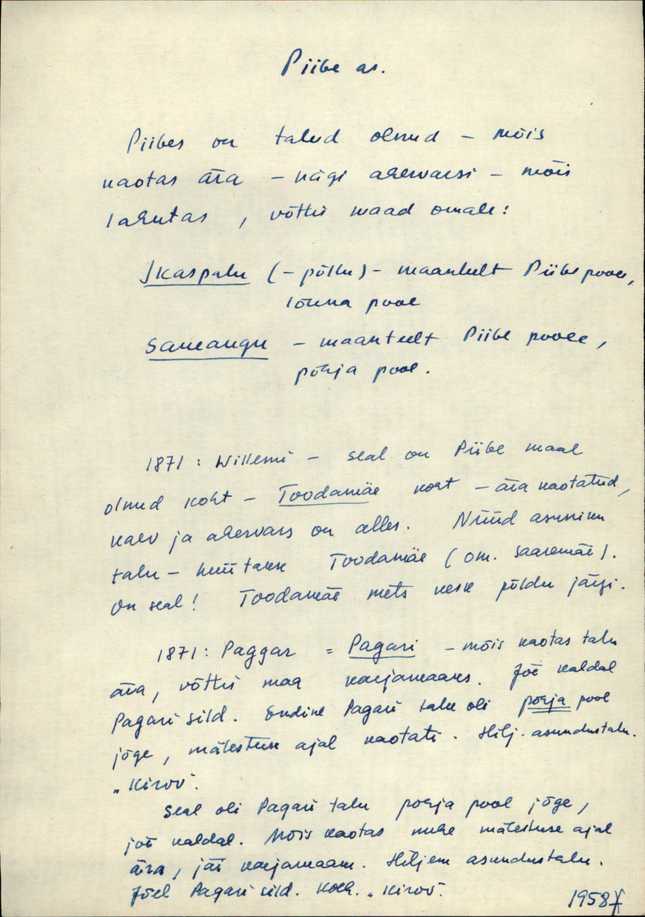 Piibe as.
Piibes on talud olnud – mõis
kaotas ära – nägi ahervarsi – mõis
lahutas, võttis maad omale:
Ikaspalu (– põllu) – maanteelt Piibe poole,
lõuna pool
Saueaugu – maanteelt Piibe poole,
põhja pool.
1871: Willemi – seal on Piibe maal
olnud koht – Toodamäe koht – ära kaotatud,
kaev ja ahervars on alles. Nüüd asuniku
talu – hüütakse Toodamäe (om. Saaremäe).
On seal! Toodamäe mets keset põldu järgi.
1871: Paggar = Pagari – mõis kaotas talu
ära, võttis maa karjamaaks. Jõe kaldal
Pagari sild. Endine Pagari talu oli põhja pool
jõge, mälestuse ajal kaotati. Hilj. asundustalu.
„Kirov".
Seal oli Pagari talu põhja pool jõge,
jõe kaldal. Mõis kaotas mehe mälestuse ajal
ära, jäi karjamaa. Hiljem asundustalu.
Jõel Pagari sild. Kolh. „Kirov".
1958